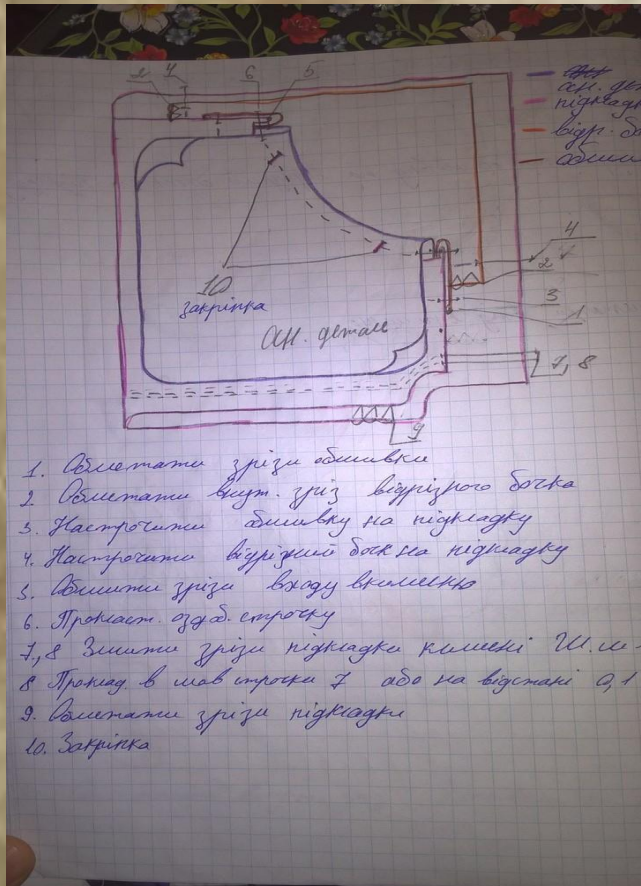 2 4 6 5
ан. дет
підкладк
відр. бо
обши
4
2
3
1
10
закріпка
ан. деталь
7, 8
9
1. Обметати зрізи обшивки
2 Обметати внут. зріз відрізного бочка
3 Настрочити обшивку на підкладку
4. Настрочити відрізний бочк на підкладку
5. Обшити зрізи входу в кишеню
6. оздоб. строчку
7., 8 Зшити зрізи підкладки кишені
8 Проклад. в строчки 7 або на відстані 0,1
9. Обметати зрізи підкладки
10. Закріпка